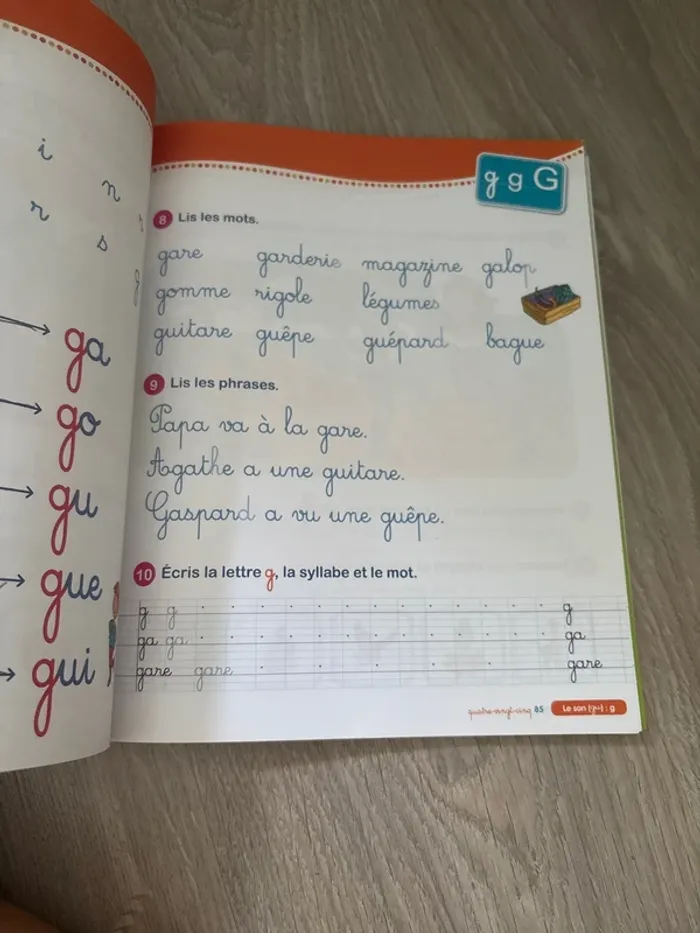 i
n
r
s
ga
go
gu
gue
gui
g g G
8 Lis les mots.
gare garderie magazine galop
gomme rigole légumes
guitare guêpe guépard bague
9 Lis les phrases.
Papa va à la gare.
Agathe a une guitare.
Gaspard a vu une guêpe.
10 Écris la lettre g, la syllabe et le mot.
g g g
ga ga ga
gare gare gare
quatre-vingt-cinq 85 Le son (gu) : g